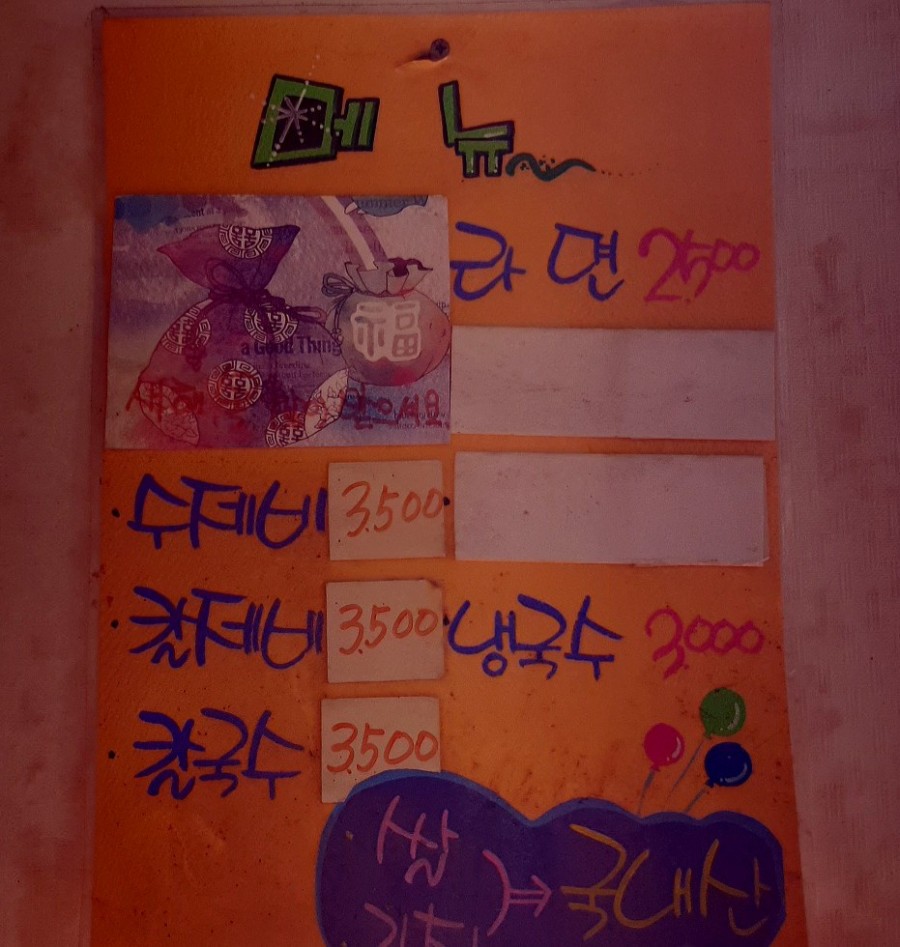 메뉴~
라면 2500
福
a Good Thing
새해 복 많이 받으세요
수제비 3.500
칼제비 3.500 냉국수 3.000
칼국수 3.500
쌀
김치 ⇒ 국내산